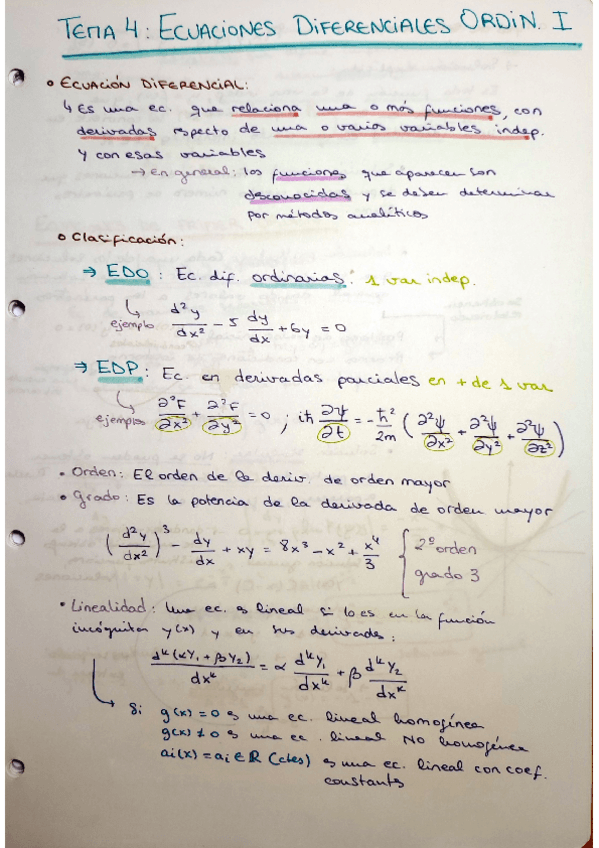 TEMA 4: ECUACIONES DIFERENCIALES ORDIN. I
• ECUACIÓN DIFERENCIAL:
↳ Es una ec. que relaciona una o más funciones, con
derivadas respecto de una o varias variables indep.
y con esas variables
→ En general: las funciones que aparecen son
desconocidas y se deben determinar
por métodos analíticos
• Clasificación:
⇒ EDO: Ec. dif. ordinarias: 1 var indep.
ejemplo d²y/dx² − 5 dy/dx + 6y = 0
⇒ EDP: Ec. en derivadas parciales en + de 1 var
ejemplos ∂²F/∂x² + ∂²F/∂y² = 0 ; iħ ∂ψ/∂t = −ħ²/2m (∂²ψ/∂x² + ∂²ψ/∂y² + ∂²ψ/∂z²)
• Orden: El orden de la deriv. de orden mayor
• Grado: Es la potencia de la derivada de orden mayor
(d²y/dx²)³ − dy/dx + xy = 8x³ − x² + x⁴/3 { 2º orden
grado 3
• Linealidad: Una ec. es lineal si lo es en las función
incógnitas y(x) y en sus derivadas:
dᵏ(αy₁ + βy₂)/dxᵏ = α dᵏy₁/dxᵏ + β dᵏy₂/dxᵏ
Si g(x) = 0 es una ec. lineal homogénea
g(x) ≠ 0 es una ec. lineal NO homogénea
ai(x) = ai ∈ R (ctes) es una ec. lineal con coef.
constants